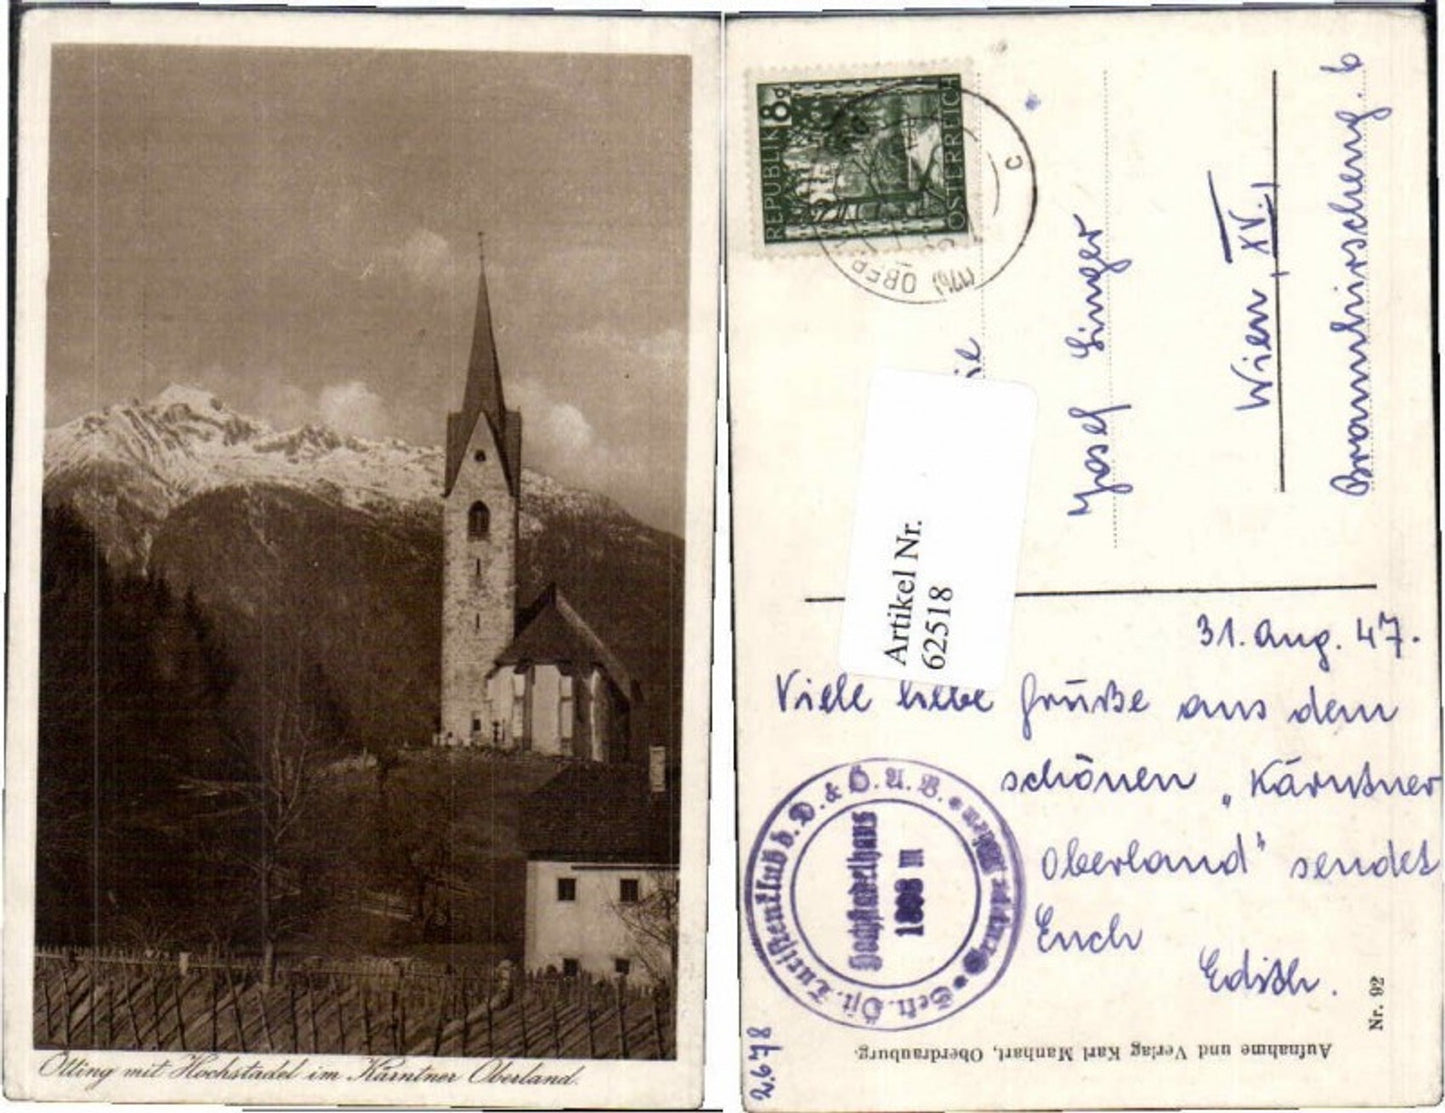 Otting mit Hochstadel im Kärntner Oberland.
REPUBLIK 8g
ÖSTERREICH
(12b) OBER
c
Josef Singer
Wien, XV.,
Braunhirscheng. 6
Artikel Nr.
62518
31. Aug. 47.
Viele liebe Grüße aus dem
schönen „Kärntner
Oberland" sendet
Euch
Edith.
Sekt. Öst. Touristenklub d. D. & Ö. A. V.
Hochstadelhaus
m
Nr. 92
Aufnahme und Verlag Karl Manhart, Oberdrauburg.
2.678